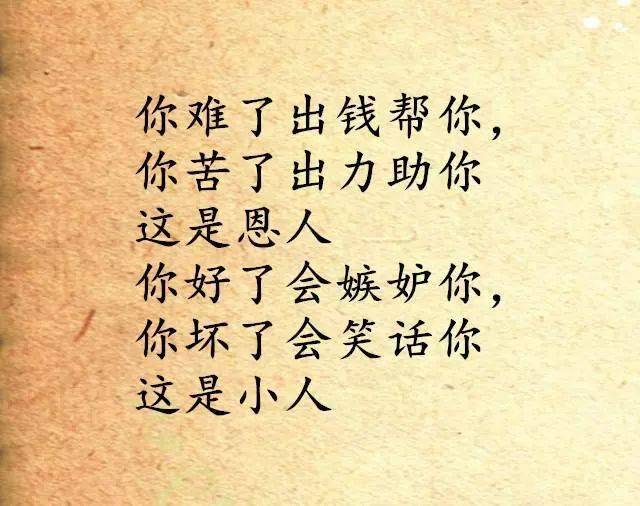 你难了出钱帮你，
你苦了出力助你
这是恩人
你好了会嫉妒你，
你坏了会笑话你
这是小人